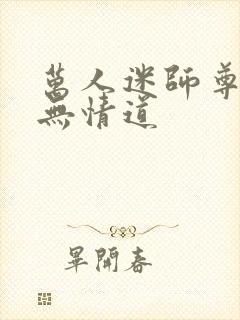 萬人迷師尊
無情道
畢開春